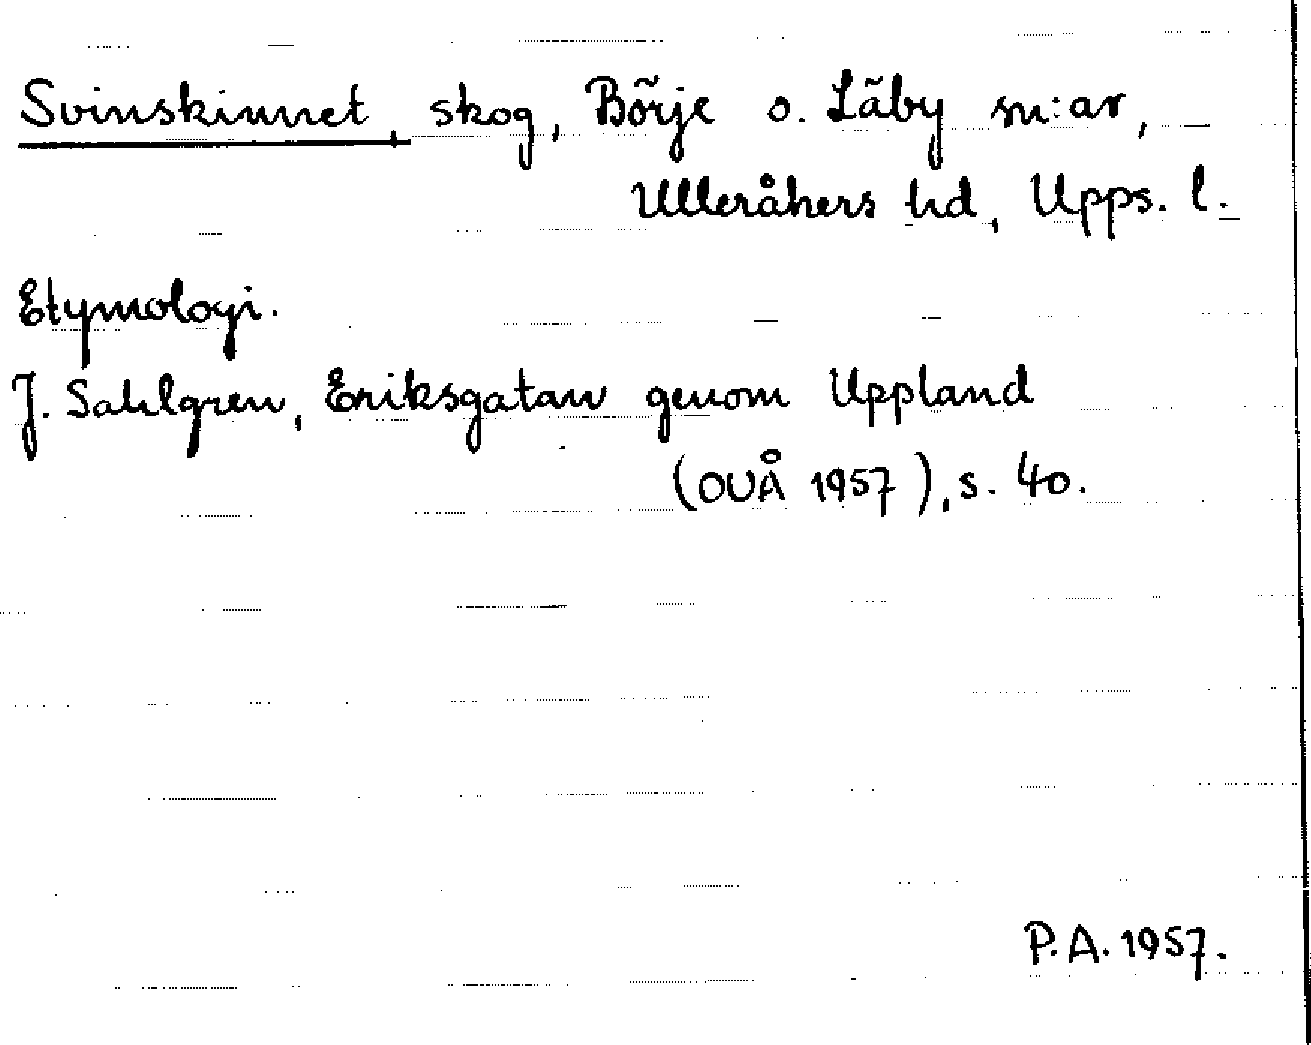 Svinskinnet, skog, Börje o. Läby sn:ar,
Ulleråkers hd, Upps. l.
Etymologi.
J. Sahlgren, Eriksgatan genom Uppland
(OUÅ 1957), s. 40.
P.A. 1957.